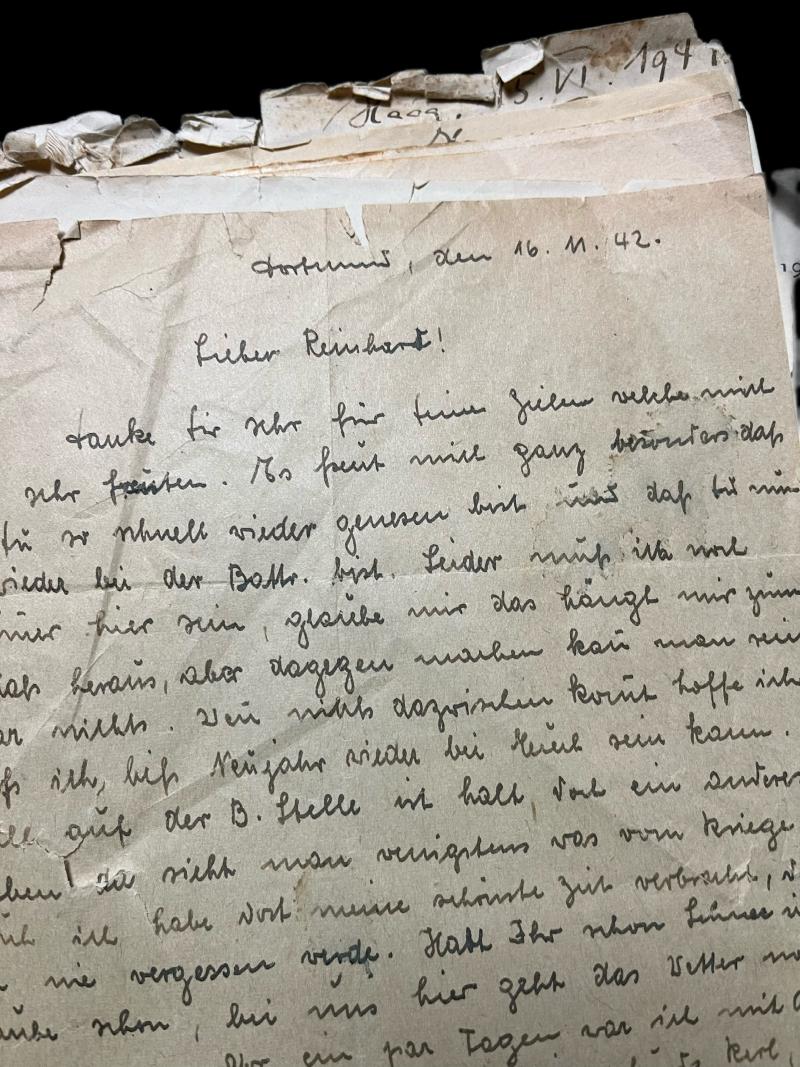 5. VI. 1941
Haag.
Dortmund, den 16. 11. 42.
Lieber Reinhard!
Danke Dir sehr für Deine Zeilen welche mich
sehr freuten. Es freut mich ganz besonders daß
Du so schnell wieder genesen bist und daß Du nun
wieder bei der Battr. bist. Leider muß ich noch
hier sein, glaube mir das hängt mir zum
heraus, aber dagegen machen kan̄ man
nichts. Wen̄ nichts dazwischen kom̄t hoffe ich
ich, biß Neujahr wieder bei Euch sein kann.
auf der B. Stelle ist halt doch ein anderes
da sieht man wenigstens was vom Kriege
ich habe dort meine schönste Zeit verbracht,
nie vergessen werde. Habt Ihr schon
schon, bei uns hier geht das Wetter
ein par Tagen war ich mit
Kerl,